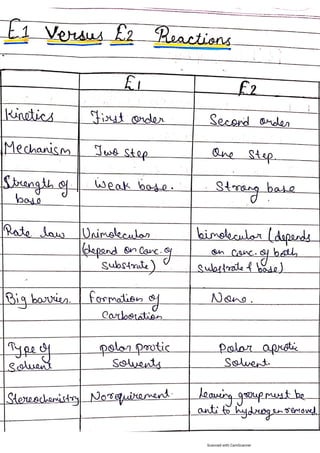 E1 Versus E2 Reactions
E1 E2
Kinetics First order Second order
Mechanism Two Step One Step.
Strength of base Weak base. Strong base
Rate law Unimolecular (depend on Conc. of Substrate) bimolecular (depends on Conc. of both Substrate & base)
Big barrier. Formation of Carbocation None.
Type of Solvent polar protic Solvents Polar aprotic Solvent.
Stereochemistry No requirement Leaving group must be anti to hydrogen removed
Scanned with CamScanner